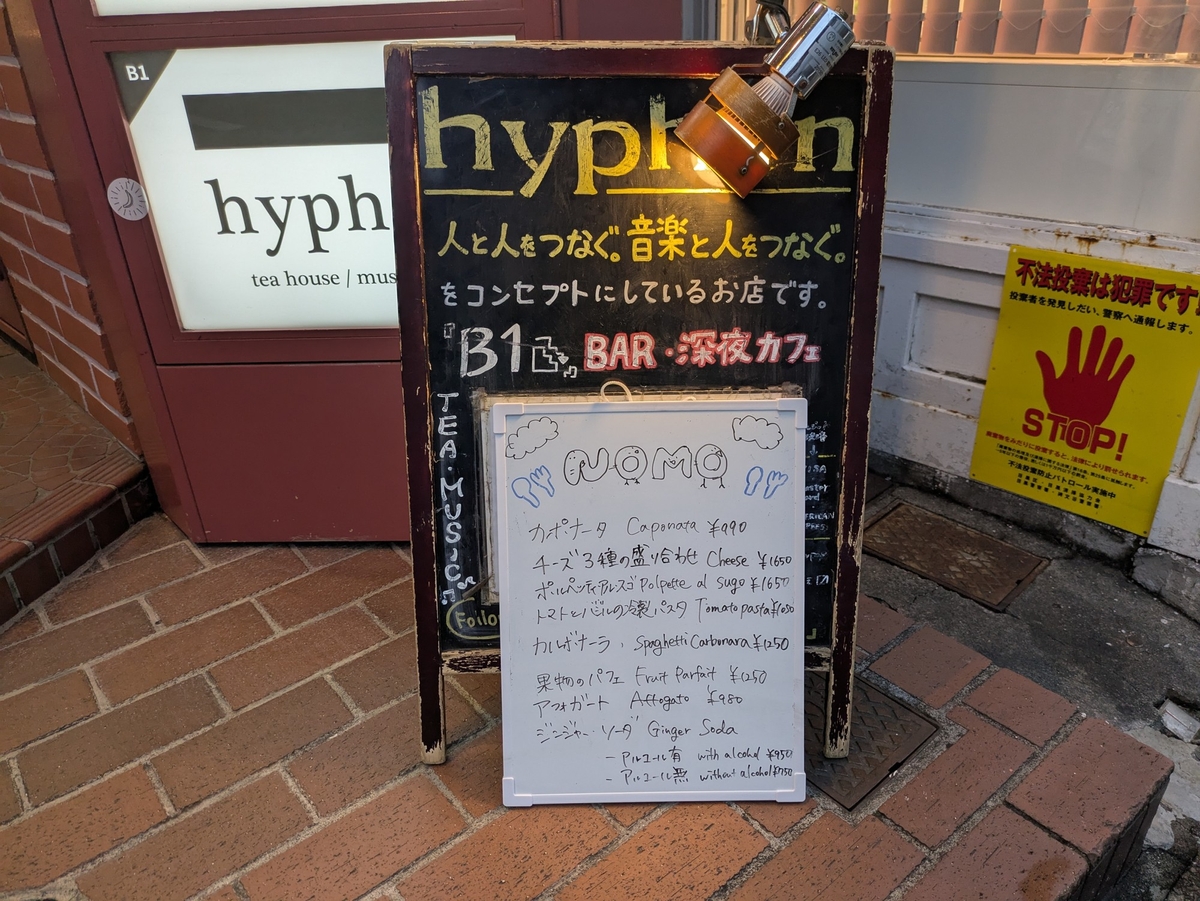 B1
hyph
tea house / mus
hyphen
人と人をつなぐ。音楽と人をつなぐ。
をコンセプトにしているお店です。
B1 BAR・深夜カフェ
TEA・MUSIC
Follo
NOMO
カポナータ Caponata ¥990
チーズ3種の盛り合わせ Cheese ¥1650
ポルペッティアルスゴ Polpette al sugo ¥1650
トマトとバジルの冷製パスタ Tomato pasta ¥1050
カルボナーラ, Spaghetti Carbonara ¥1250
果物のパフェ Fruit Parfait ¥1250
アフォガート Affogato ¥980
ジンジャー・ソーダ Ginger Soda
- アルコール有 with alcohol ¥950
- アルコール無 without alcohol ¥750
不法投棄は犯罪です!
投棄者を発見しだい、警察へ通報します。
STOP!
不法投棄防止パトロール実施中